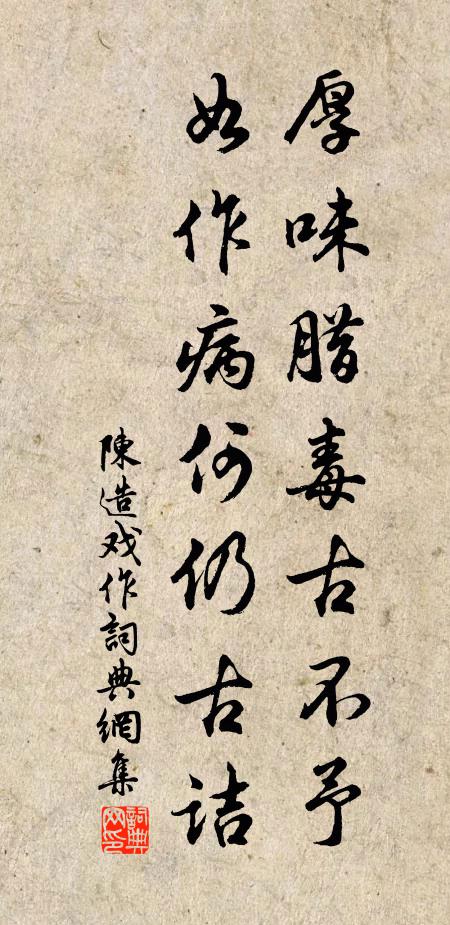 厚味腊毒古不予
如作病何仍古诘
陳造戏作詞典網集
詞典网印